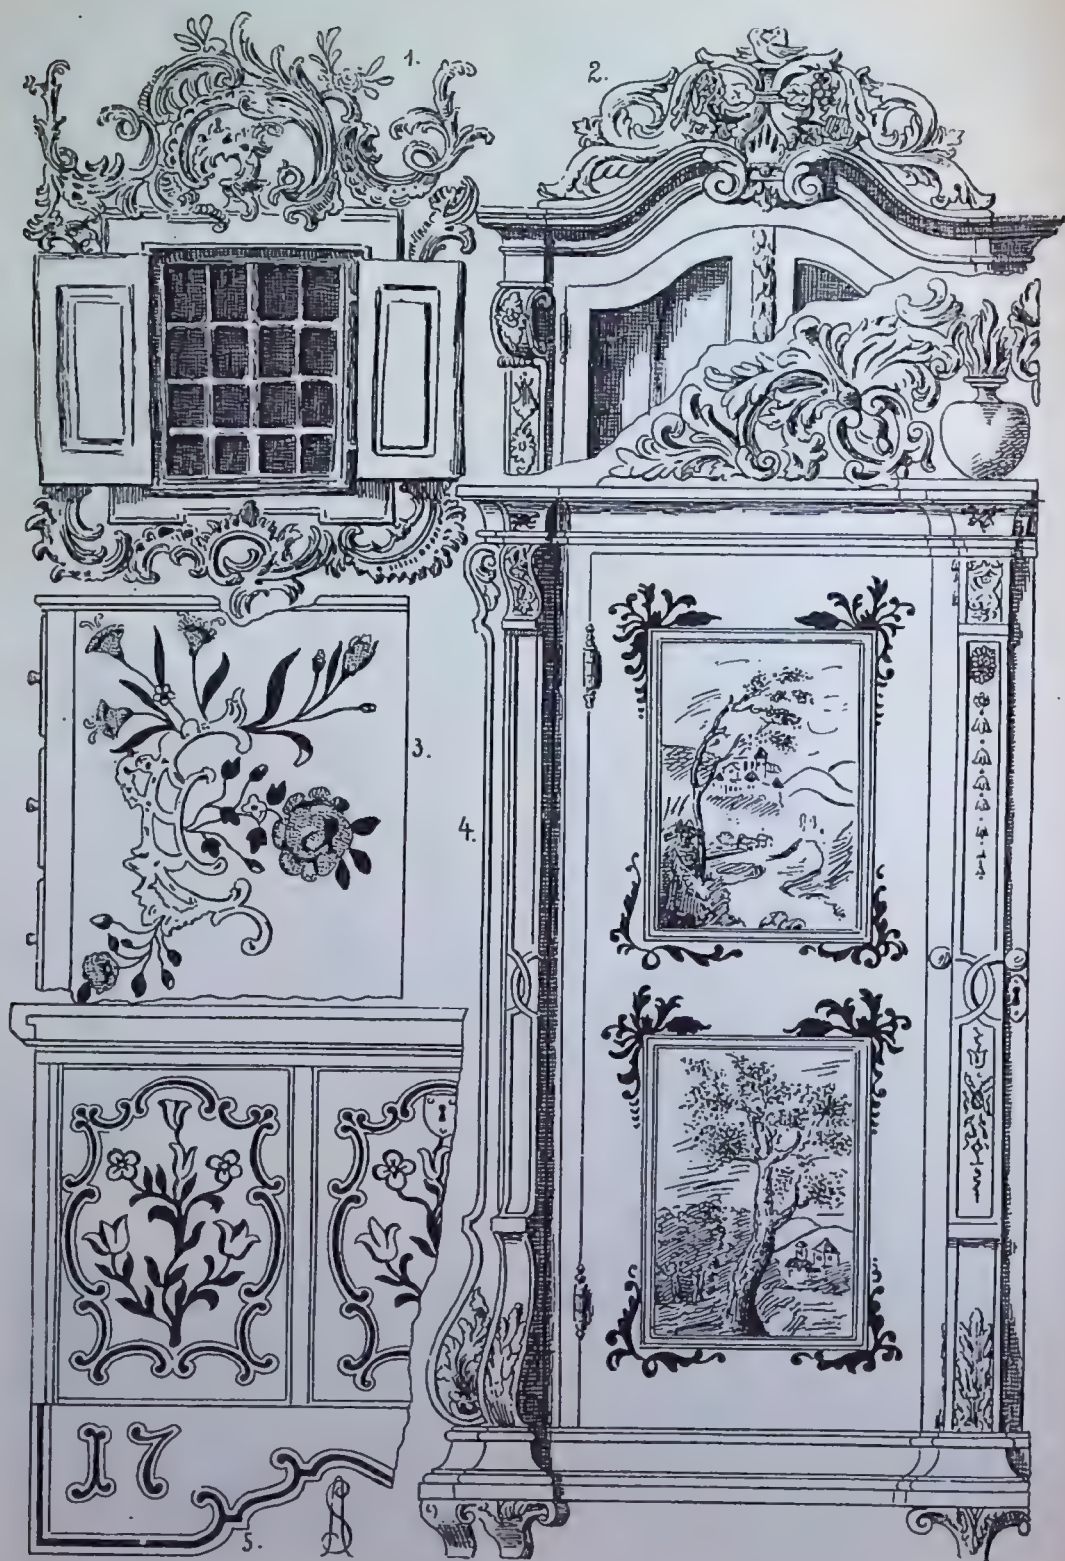 1.
2.
3.
4.
17
5.